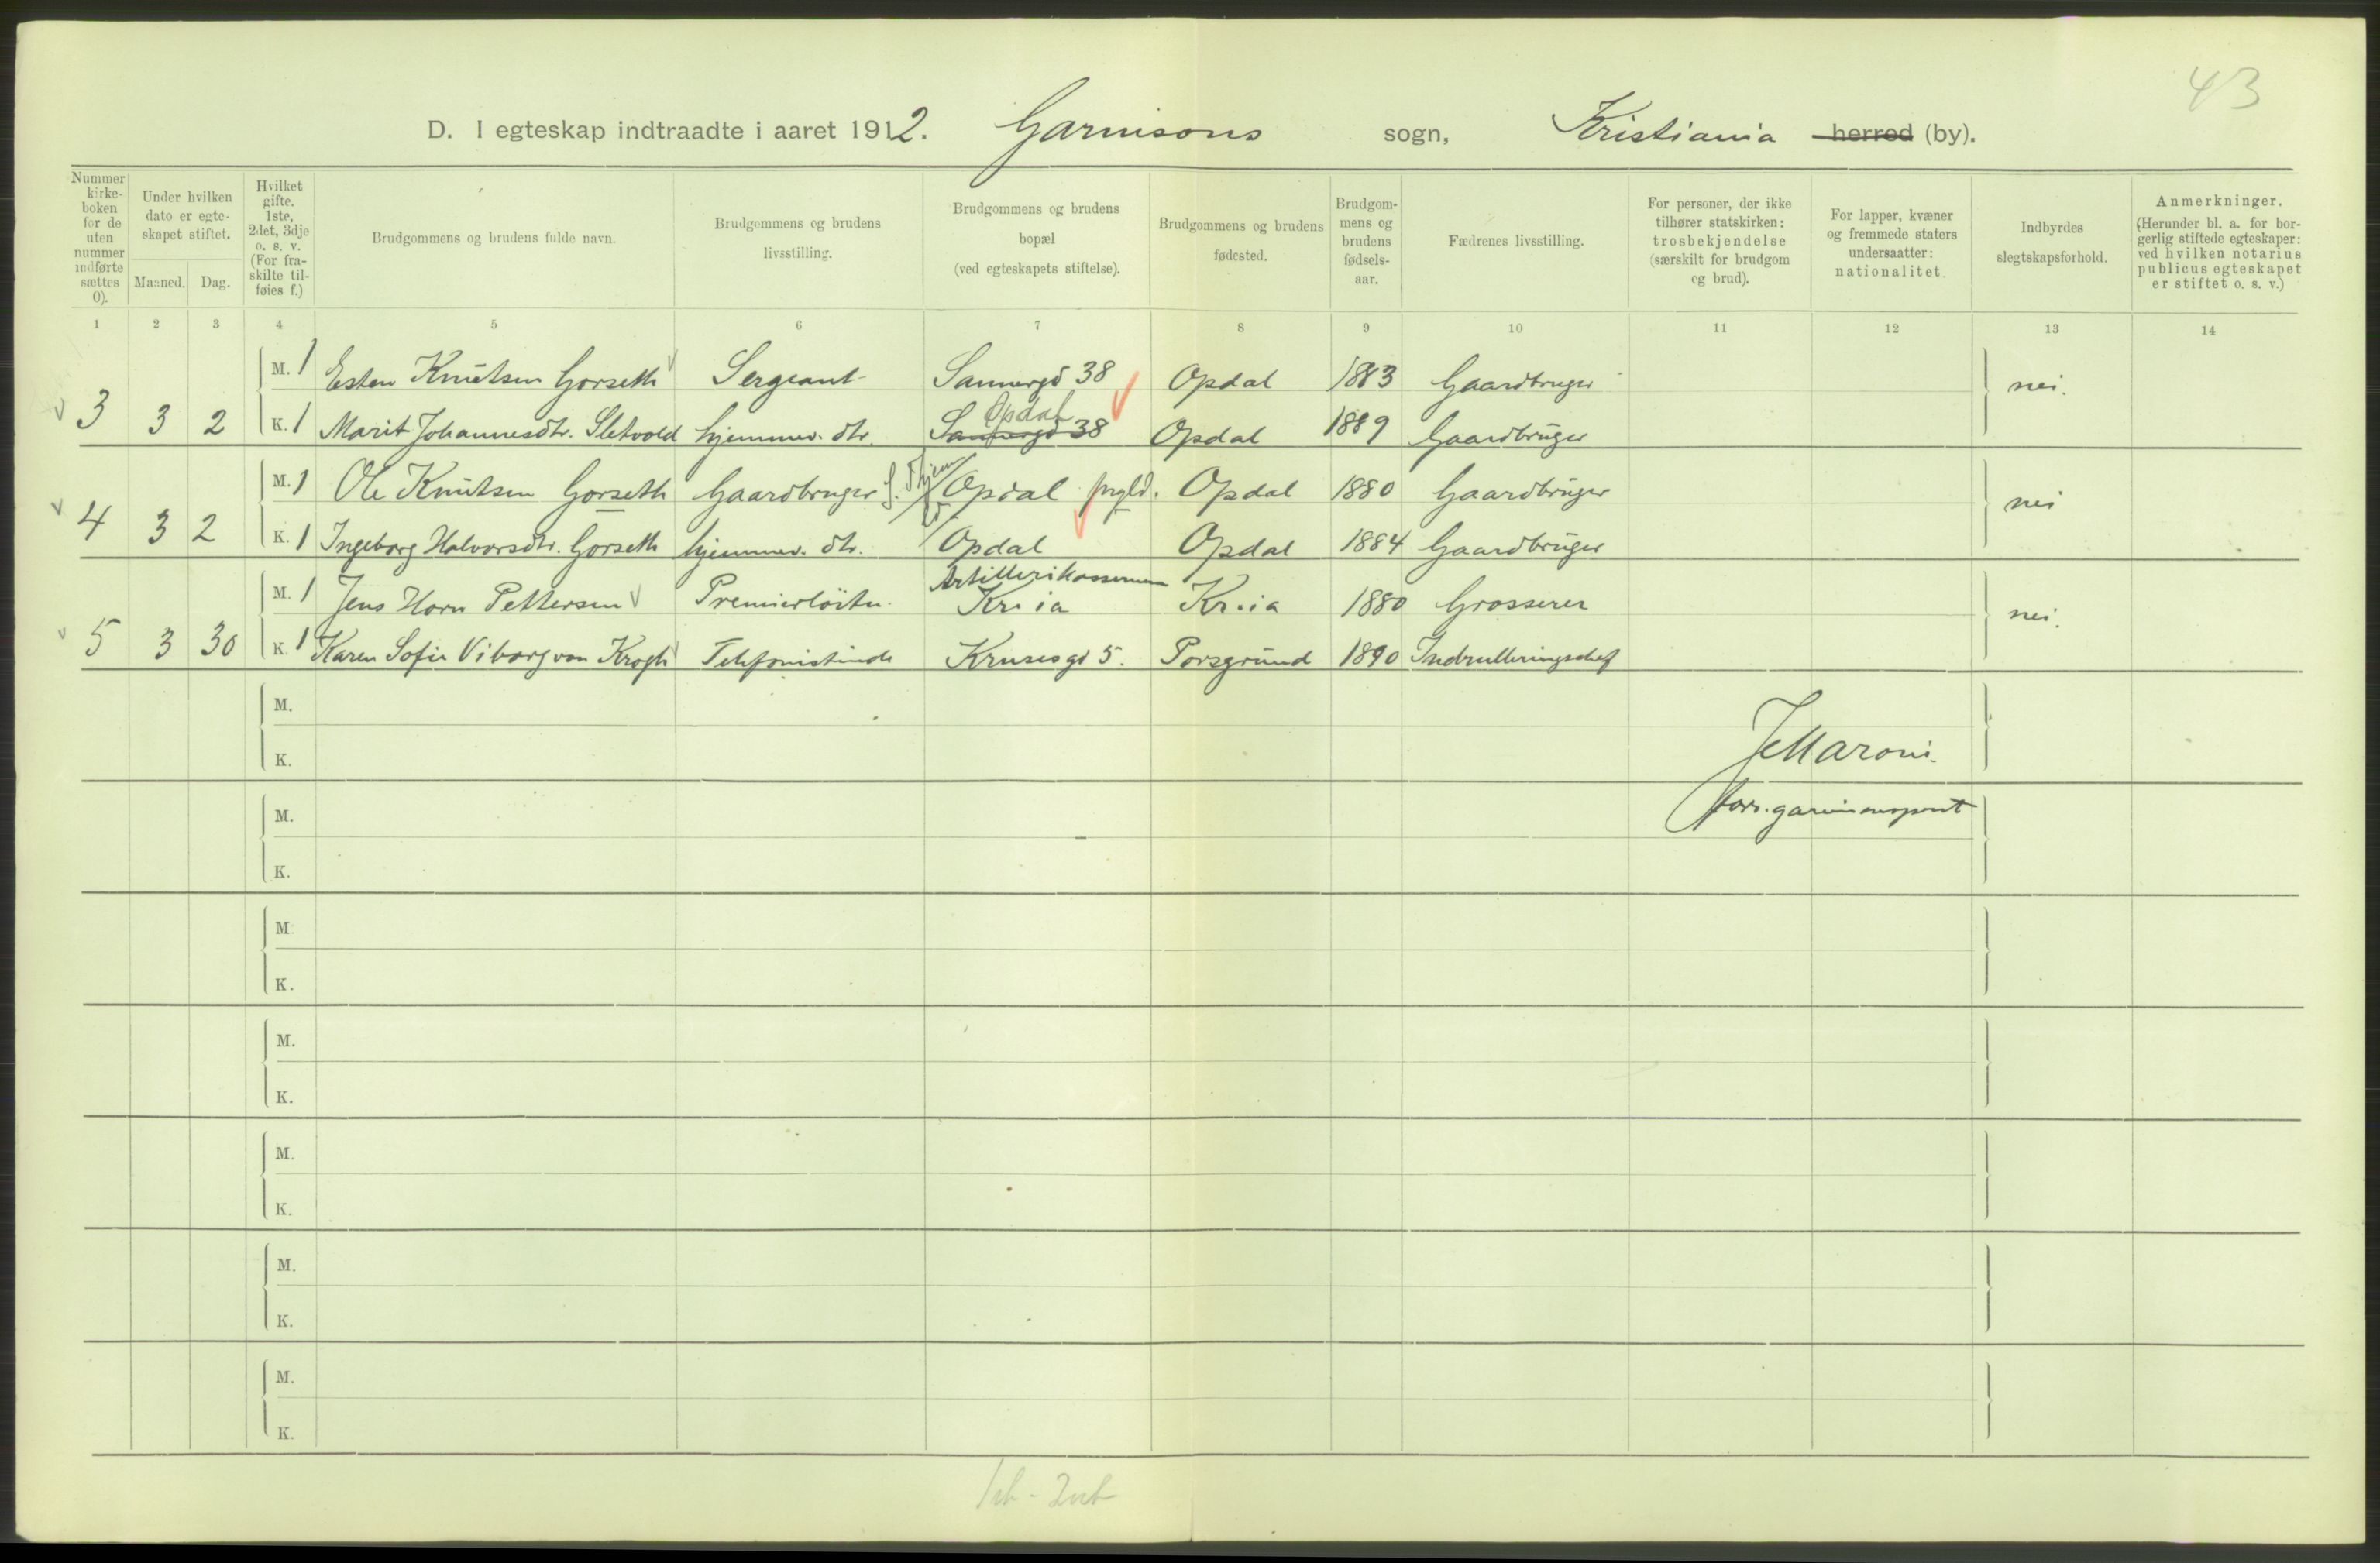 43
D. I egteskap indtraadte i aaret 1912. Garnisons sogn, Kristiania herred (by).
Nummer kirkeboken for de uten nummer indførte sættes 0).
Under hvilken dato er egteskapet stiftet.
Maaned. Dag.
Hvilket gifte. 1ste, 2det, 3dje o. s. v. (For fraskilte tilføies f.)
Brudgommens og brudens fulde navn.
Brudgommens og brudens livsstilling.
Brudgommens og brudens bopæl (ved egteskapets stiftelse).
Brudgommens og brudens fødested.
Brudgommens og brudens fødselsaar.
Fædrenes livsstilling.
For personer, der ikke tilhører statskirken: trosbekjendelse (særskilt for brudgom og brud).
For lapper, kvæner og fremmede staters undersaatter: nationalitet.
Indbyrdes slegtskapsforhold.
Anmerkninger. (Herunder bl. a. for borgerlig stiftede egteskaper: ved hvilken notarius publicus egteskapet er stiftet o. s. v.)
1 2 3 4 5 6 7 8 9 10 11 12 13 14
M. 1 Esten Knutsen Gorseth Sergeant Sannergd 38 Opdal 1883 Gaardbruger nei.
Opdal
3 3 2 K. 1 Marit Johannesdtr. Sletvold hjemmev. dtr. Sannergd 38 Opdal 1889 Gaardbruger
M. 1 Ole Knutsen Gorseth Gaardbruger Opdal Opdal 1880 Gaardbruger nei
4 3 2 K. 1 Ingeborg Halvorsdtr. Gorseth hjemmev. dtr. Opdal Opdal 1884 Gaardbruger
Artillerikassernen
M. 1 Jens Horn Pettersen Premierløitn. Kr.ia Kr.ia 1880 Grosserer nei.
5 3 30 K. 1 Karen Sofie Viborg von Krogh Telefonistinde Krusesgt 5. Porsgrund 1890 Indrulleringschef
M.
JMaroni.
K.
M. garnisonsprest
K.
M.
K.
M.
K.
M.
K.
M.
K.
M.
K.